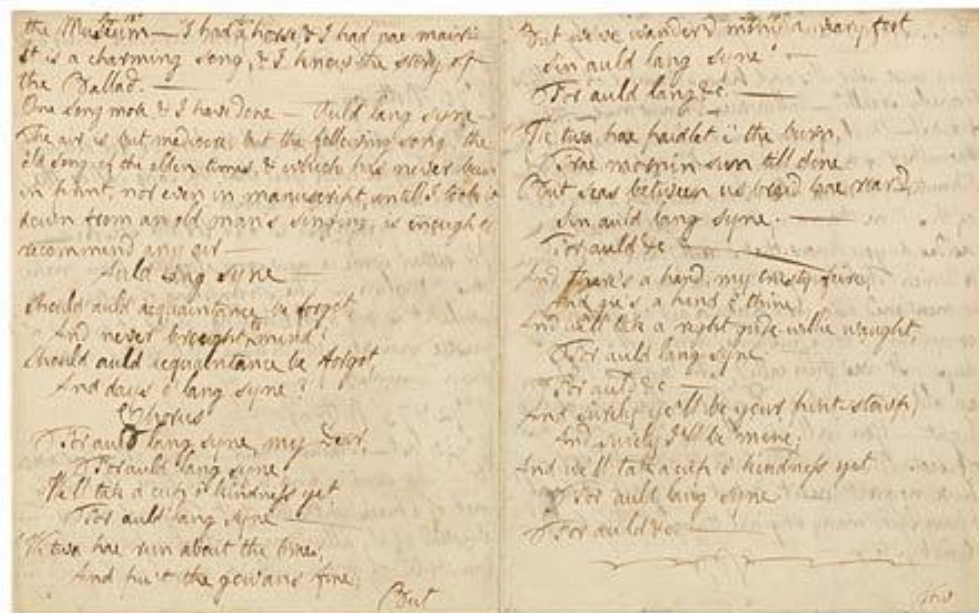 the Museum — I had a horse & I had nae mair —
It is a charming song, & I know the story of
the Ballad. —
One song more & I have done — Auld lang syne —
The air is but mediocre; but the following song, the
old song of the olden times, & which has never been
in print, nor even in manuscript, untill I took it
down from an old man's singing, is enough to
recommend any air —
Auld lang syne —
Should auld acquaintance be forgot,
And never brought to mind?
Should auld acquaintance be forgot,
And days o' lang syne?
Chorus
For auld lang syne, my Dear,
For auld lang syne,
We'll tak a cup o' kindness yet
For auld lang syne —
We twa hae run about the braes,
And pu't the gowans fine;
But
But we've wander'd mony a weary foot
Sin auld lang syne. —
For auld lang &c —
We twa hae paidlet i' the burn,
Frae mornin sun till dine
But seas between us braid hae roar'd,
Sin auld lang syne. —
For auld &c —
And there's a hand, my trusty fiere,
And gie's a hand o' thine;
And we'll tak a right gude-willie waught,
For auld lang syne
For auld &c —
And surely ye'll be your pint-stowp,
And surely I'll be mine;
And we'll tak a cup o' kindness yet
For auld lang syne
For auld &c —